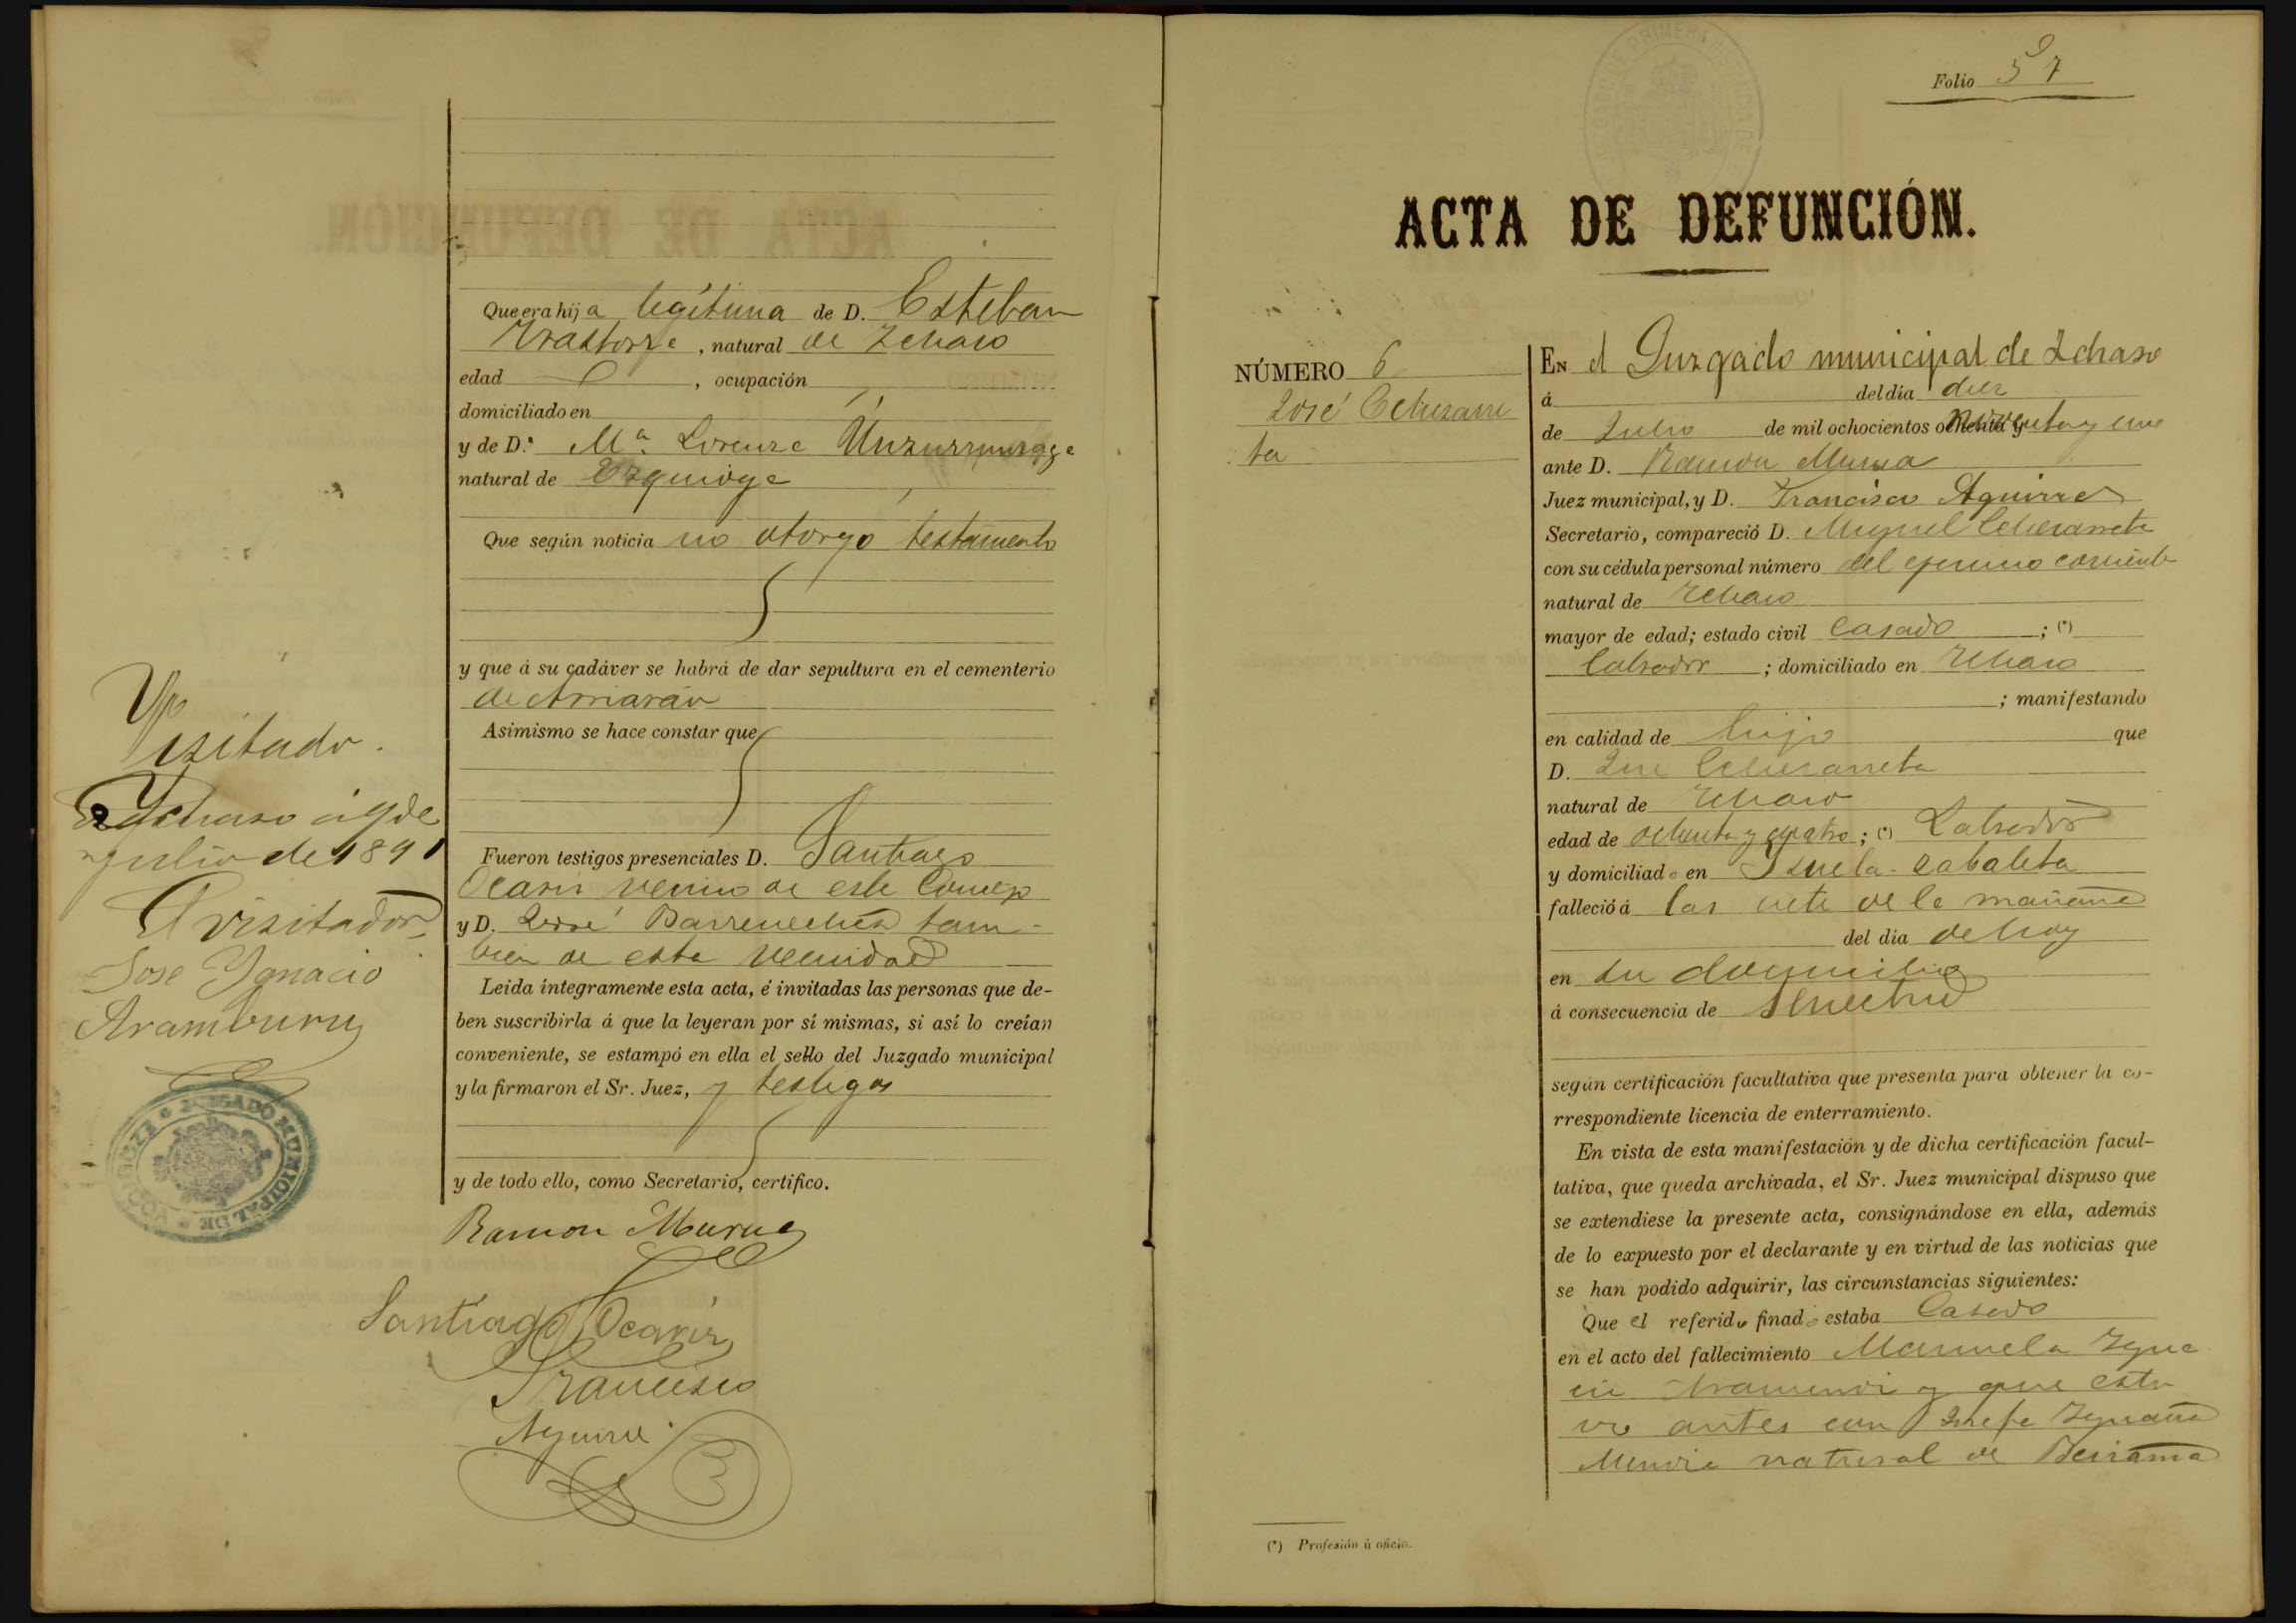 Que era hija legítima de D. Esteban
Yrastorze, natural de Ychaso
edad , ocupación
domiciliado en
y de D.ª Mª Lorenza Unzurrunzaga
natural de Ezquioga
Que según noticia no otorgo testamento
y que á su cadáver se habrá de dar sepultura en el cementerio
de Arriarán
Asimismo se hace constar que
Fueron testigos presenciales D. Santiago
Ocariz vecino de este Concejo
y D. José Barrenechea tam-
bien de esta vecindad
Leida íntegramente esta acta, é invitadas las personas que de-
ben suscribirla á que la leyeran por sí mismas, si así lo creían
conveniente, se estampó en ella el sello del Juzgado municipal
y la firmaron el Sr. Juez, y testigos
y de todo ello, como Secretario, certifico.
Ramon Murua
Santiago Ocariz
Francisco
Aguirre
Visitado.
Ychaso á 19 de
julio de 1891
El visitador
Jose Ygnacio
Aramburu
JUZGADO MUNICIPAL DE
Folio 57
ACTA DE DEFUNCIÓN.
NÚMERO 6
José Echezarre
ta
EN el Juzgado municipal de Ichaso
á del dia diez
de Julio de mil ochocientos noventa y uno
ante D. Ramon Murua
Juez municipal, y D. Francisco Aguirre
Secretario, compareció D. Miguel Echezarreta
con su cédula personal número del ejercicio corriente
natural de Ychaso
mayor de edad; estado civil Casado ; (*)
labrador ; domiciliado en Ychaso
; manifestando
en calidad de hijo que
D. José Echezarreta
natural de Ychaso
edad de ochenta y cuatro; (*) Labrador
y domiciliado en zabaleta
falleció á las siete de la mañana
del dia de hoy
en su domicilio
á consecuencia de Senectud
según certificación facultativa que presenta para obtener la co-
rrespondiente licencia de enterramiento.
En vista de esta manifestación y de dicha certificación facul-
tativa, que queda archivada, el Sr. Juez municipal dispuso que
se extendiese la presente acta, consignándose en ella, además
de lo expuesto por el declarante y en virtud de las noticias que
se han podido adquirir, las circunstancias siguientes:
Que el referido finado estaba Casado
en el acto del fallecimiento Manuela Ygna
cia Aramendi y que estu
vo antes con Josefa Ygnacia
Mendia natural de Beizama
(*) Profesión ú oficio.